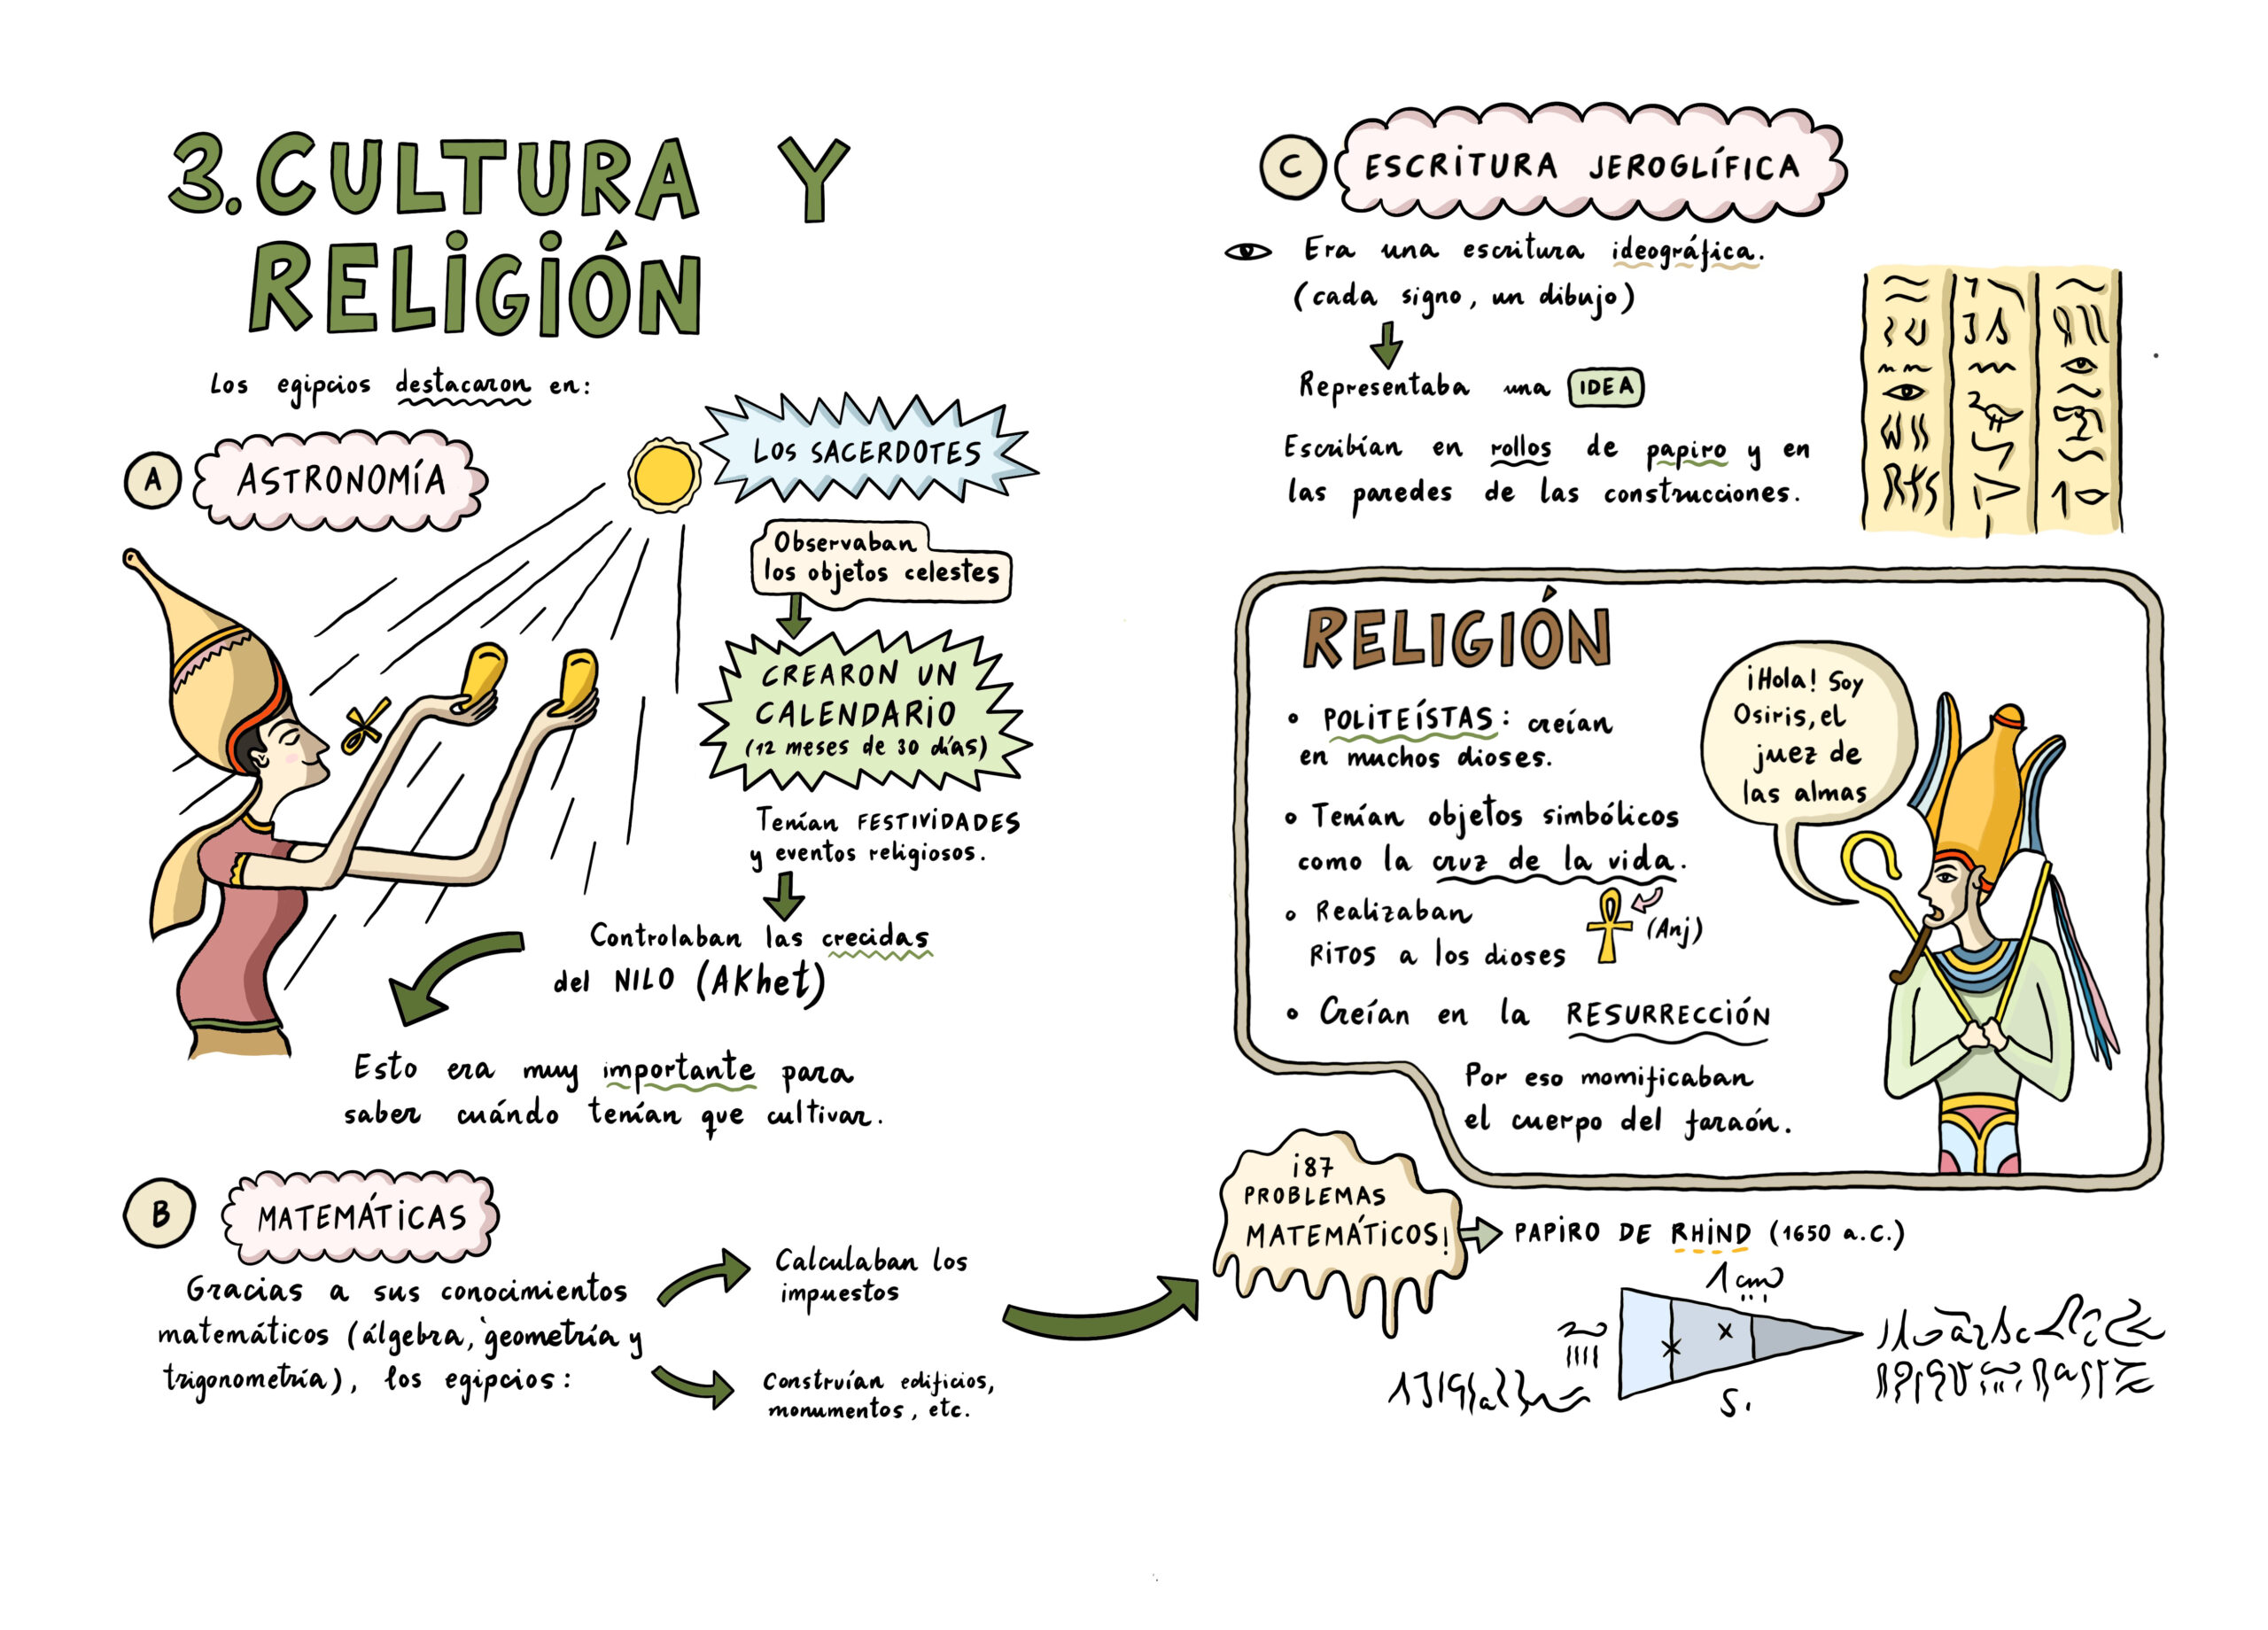 3. CULTURA Y
RELIGIÓN
Los egipcios destacaron en:
A
ASTRONOMÍA
LOS SACERDOTES
Observaban
los objetos celestes
CREARON UN
CALENDARIO
(12 meses de 30 días)
Tenían FESTIVIDADES
y eventos religiosos.
Controlaban las crecidas
del NILO (AKhet)
Esto era muy importante para
saber cuándo tenían que cultivar.
B
MATEMÁTICAS
Gracias a sus conocimientos
matemáticos (álgebra, geometría y
trigonometría), los egipcios:
Calculaban los
impuestos
Construían edificios,
monumentos, etc.
¡87
PROBLEMAS
MATEMÁTICOS!
PAPIRO DE RHIND (1650 a.C.)
C
ESCRITURA JEROGLÍFICA
Era una escritura ideográfica.
(cada signo, un dibujo)
Representaba una IDEA
Escribían en rollos de papiro y en
las paredes de las construcciones.
RELIGIÓN
• POLITEÍSTAS: creían
en muchos dioses.
• Tenían objetos simbólicos
como la cruz de la vida.
(Anj)
• Realizaban
RITOS a los dioses
• Creían en la RESURRECCIÓN
Por eso momificaban
el cuerpo del faraón.
¡Hola! Soy
Osiris, el
juez de
las almas